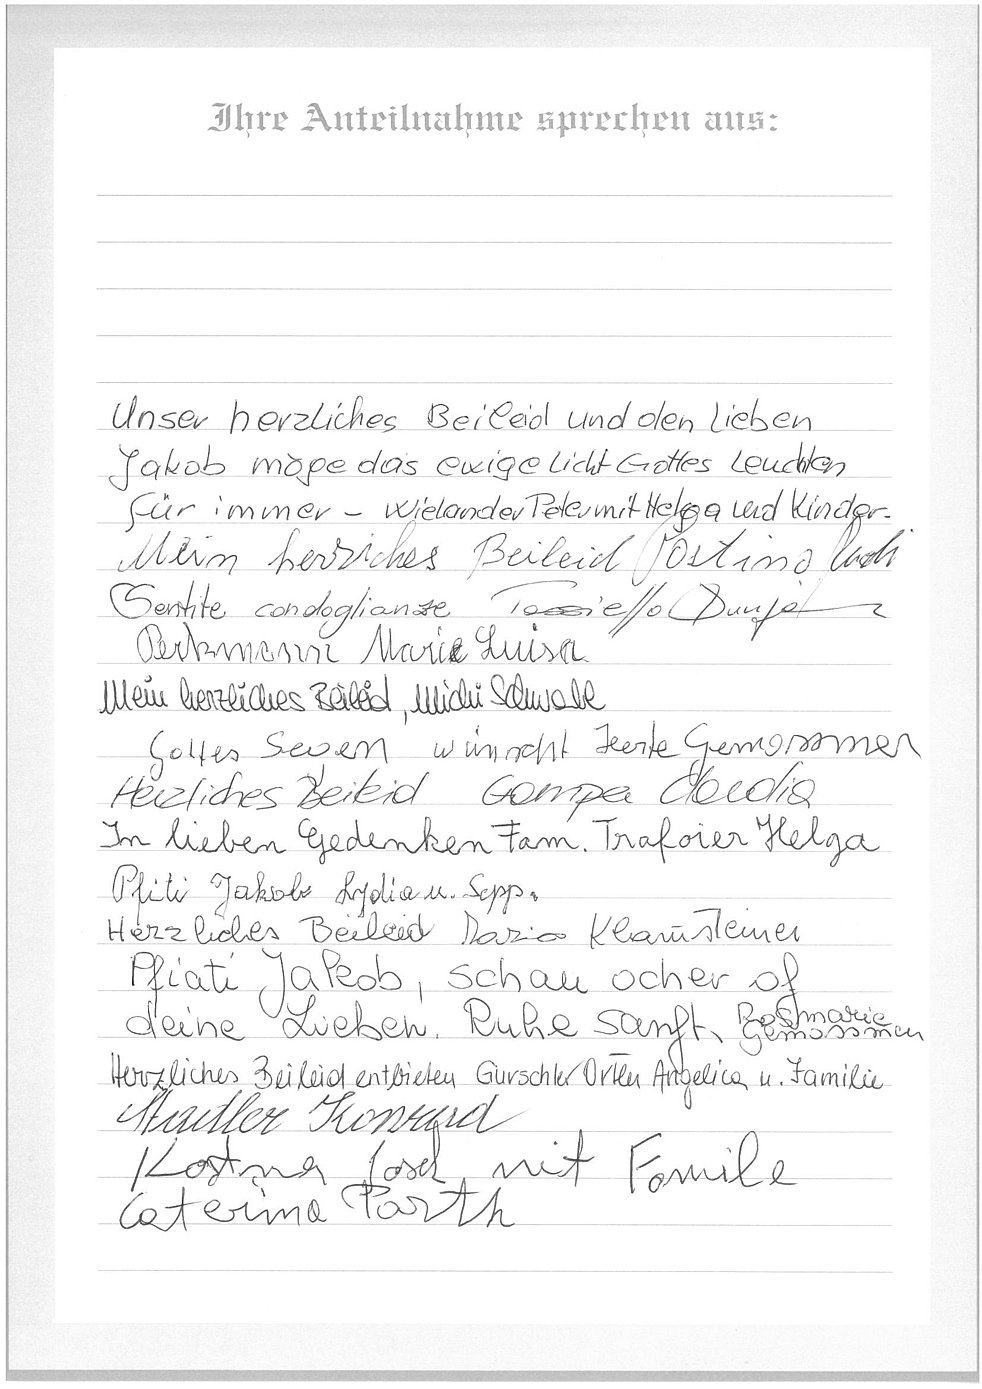 Ihre Anteilnahme sprechen aus:
Unser herzliches Beileid und den lieben
Jakob möge das ewige licht Gottes leuchten
für immer – Wielander Peter mit Helga und Kinder.
Mein herzliches Beileid Postino
Sentite condoglianze
Perkmann Maria Luisa
Mein herzliches Beileid, Michi Schwalt
Gottes Segen wünscht Herta Gemassmer
Herzliches Beileid Gamper Claudia
In lieben Gedenken Fam. Trafoier Helga
Pfiti Jakob Lydia u. Sepp.
Herzliches Beileid Maria Klaunsteiner
Pfiati Jakob, schau ocher of
deine Lieben. Ruhe sanft, Rosmarie
Gemassmer
Herzliches Beileid entbieten Gurschler Orten Angelica u. Familie
Stadler Konrad
Kostner Josef mit Familie
Caterina Parth